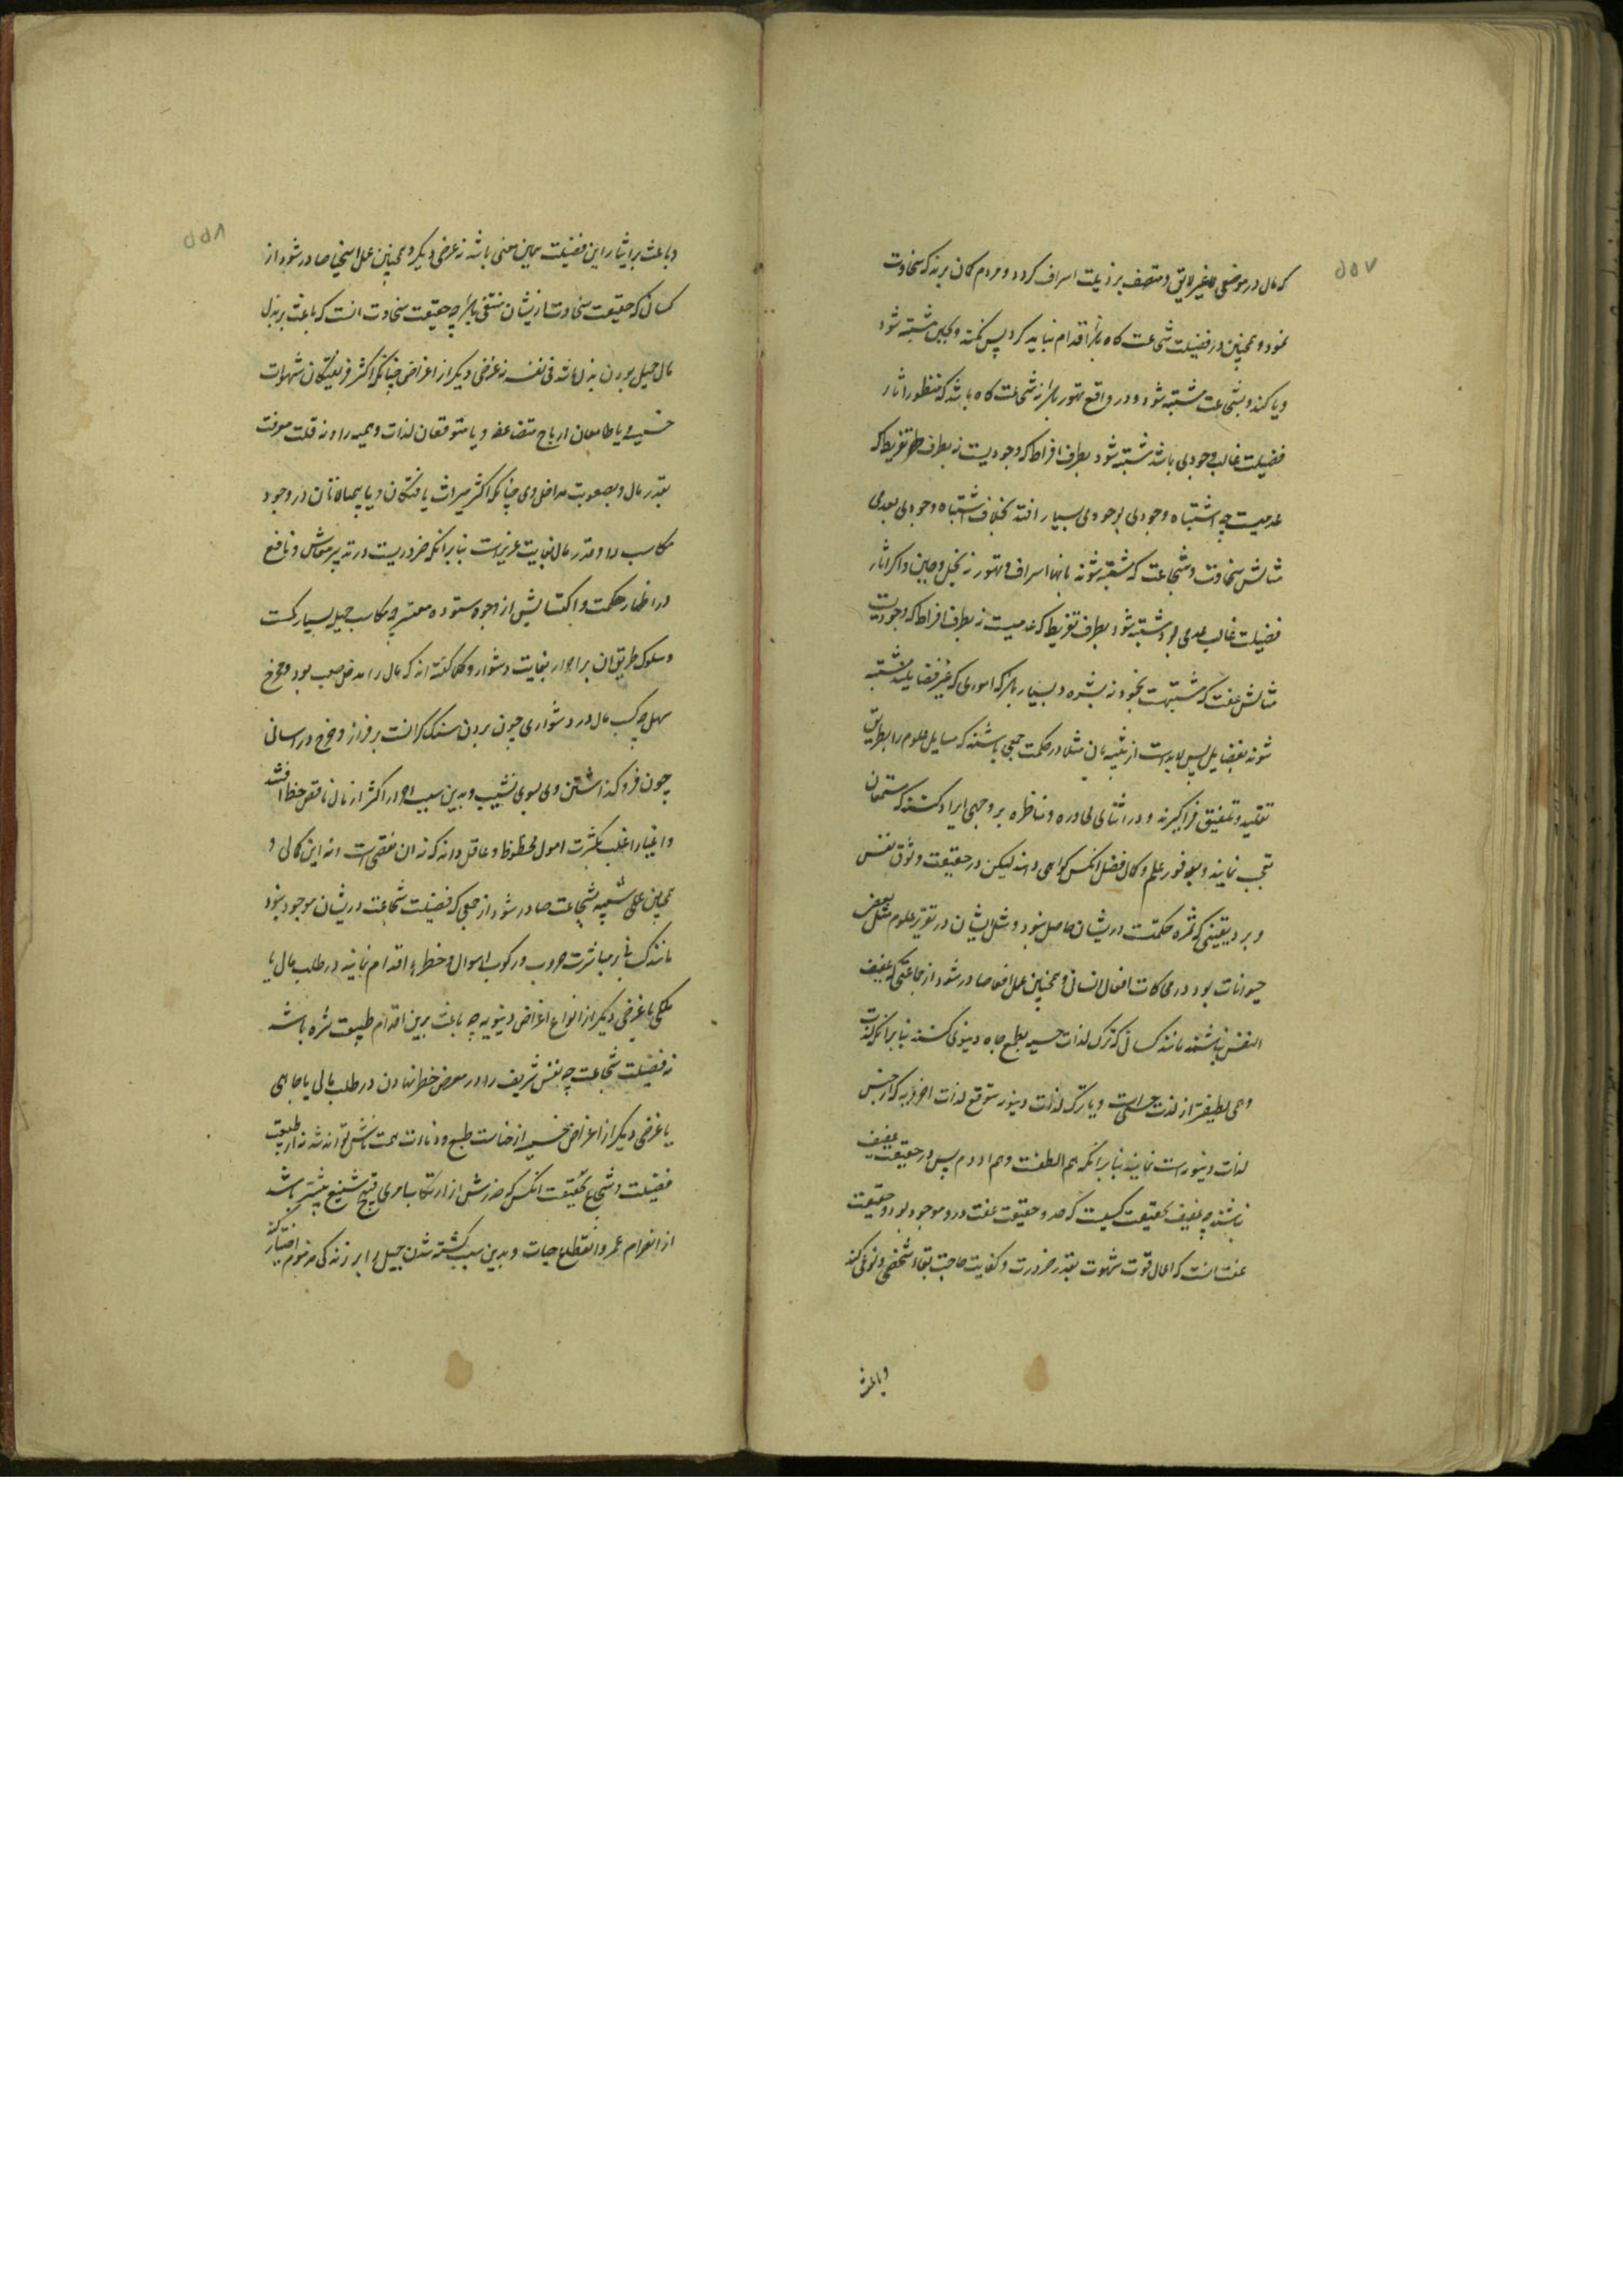 ۵۵۷
که مال در موضعی غیر لایق و متصف برذیلت اسراف کردد و مردم کان برند که سخاوت
نمود و همچنین در فضیلت شجاعت کاه باشد اقدام نباید کرد پس نکند و بجبن مشتبه شود
و یا کند و بشجاعت مشتبه شود و در واقع تهور باشد نه شجاعت کاه باشد که منظور اثار
فضیلت غالب وجودی باشد مشتبه شود بطرف افراط که وجودیست نه بطرف تفریط که
عدمیست چه اشتباه وجودی بوجودی بسیار افتد بخلاف اشتباه وجودی بعدمی
مثالش سخاوت و شجاعت که مشتبه شوند بانها اسراف و تهور نه بخل و جبن و اکر اثار
فضیلت غالب عدمی بود مشتبه شود بطرف تفریط که عدمیست نه بطرف افراط که وجودیست
مثالش عفت که مشتبهت بخمود نه بشره و بسیار باشد که اموری که غیر فضایلند مشتبه
شوند بفضایل پس لابدست از تنبیه بان مثلا در حکمت جمعی باشند که مسایل علوم را بطریق
تقلید و تلفیق فراکیرند و در اثنای محاوره و مناظره بر وجهی ایراد کنند که مستمعان
تعجب نمایند و بوفور علم و کمال فضل انکس کواهی دهند لیکن در حقیقت وثوق نفس
و برد یقینی که ثمره حکمتست دریشان حاصل نبود و مثل ایشان در تقریر علوم مثل بعض
حیوانات بود در محاکات افعال انسانی و همچنین عمل اعفا صادر شود از جماعتی که عفیف
النفس نباشند مانند کسانی که ترک لذات حسیه بطمع جاه دنیوی کنند بنا برانکه لذت
وهمی لطیفتر از لذت حسی است و یا ترک لذات دنیوی بتوقع لذات اخرویه که از جنس
لذات دنیویست نمایند بنا برانکه هم الطفست و هم ادوم پس در حقیقت عفیف
نباشند چه عفیف بحقیقت کسیست که حد و حقیقت عفت درو موجود بود و حقیقت
عفت انست که اعمال قوت شهوت بقدر ضرورت و کفایت حاجت بقاء شخصی و نوعی کند
وباعث
۵۵۸
وباعث بر ایثار این فضیلت همین معنی باشد نه غرضی دیکر و همچنین عمل اسخیا صادر شود از
کسانی که حقیقت سخاوت ازیشان منتفی باشد چه حقیقت سخاوت انست که باعث بر بذل
مال جمیل بودن بذل باشد فی نفسه نه غرضی دیکر از اغراض چنانکه اکثر فریفتکان شهوات
خسیسه یا طامعان ارباح متضاعفه و یا متوقعان لذات وهمیه را و نه قلت معرفت
بقدر مال و بصعوبت مداخل وی چنانکه اکثر میراث یافتکان و یا بیمبالاتان در وجوه
مکاسب را و قدر مال بغایت عزیزست بنا برانکه ضروریست در تدبیر معاش و نافع
در اظهار حکمت و اکتسابش از وجوه ستوده معتبر چه مکاسب جمیل بسیار کمست
و سلوک طریق ان بر احرار بغایت دشوار و حکما کفته اند که مال را مدخل صعب بود و مخرج
سهل چه کسب مال در دشواری چون بردن سنک کرانست بر فراز و خرج در اسانی
چون فرو کذاشتن وی بسوی نشیب و بدین سبب احرار اکثر از مال ناقص حظ افتند
و اغیار اغلب بکثرت اموال محظوظ و عاقل داند که نه ان نقصی است و نه این کمالی و
همچنین عملی شبیه بشجاعت صادر شود از جمعی که فضیلت شجاعت دریشان موجود نبود
مانند کسانی که بر مباشرت حروب و رکوب اهوال و خطرها اقدام نمایند در طلب مال یا
ملکی یا غرضی دیکر از انواع اغراض دنیویه چه باعث برین اقدام طبیعت شره باشد
نه فضیلت شجاعت چه نفس شریف را در معرض خطر نهادن در طلب مالی یا جاهی
یا غرضی دیکر از اغراض خسیسه از خساست طبع و دناءت همت ناشی تواند شد نه از طبیعت
فضیلت و شجاع بحقیقت انکس که حذرش از ارتکاب امری قبیح شنیع بیشتر باشد
از انصرام عمر و انقطاع حیات و بدین سبب کشته شدن جمیل را بر زندکی مذموم اختیار کند